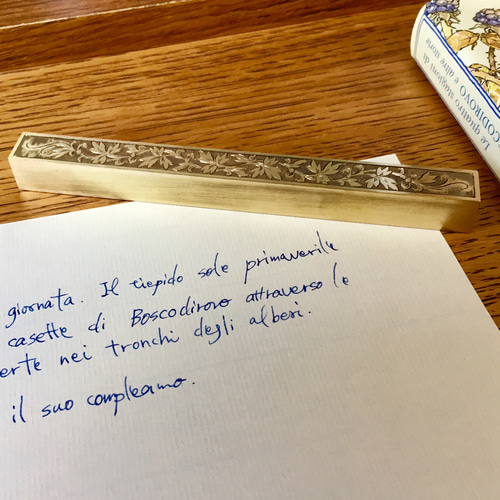 giornata. Il tiepido sole primaverile
casette di Boscodirovo attraverso le
erte nei tronchi degli alberi.
il suo compleanno.
Le quattro stagioni di
CODIROVO e altre storie